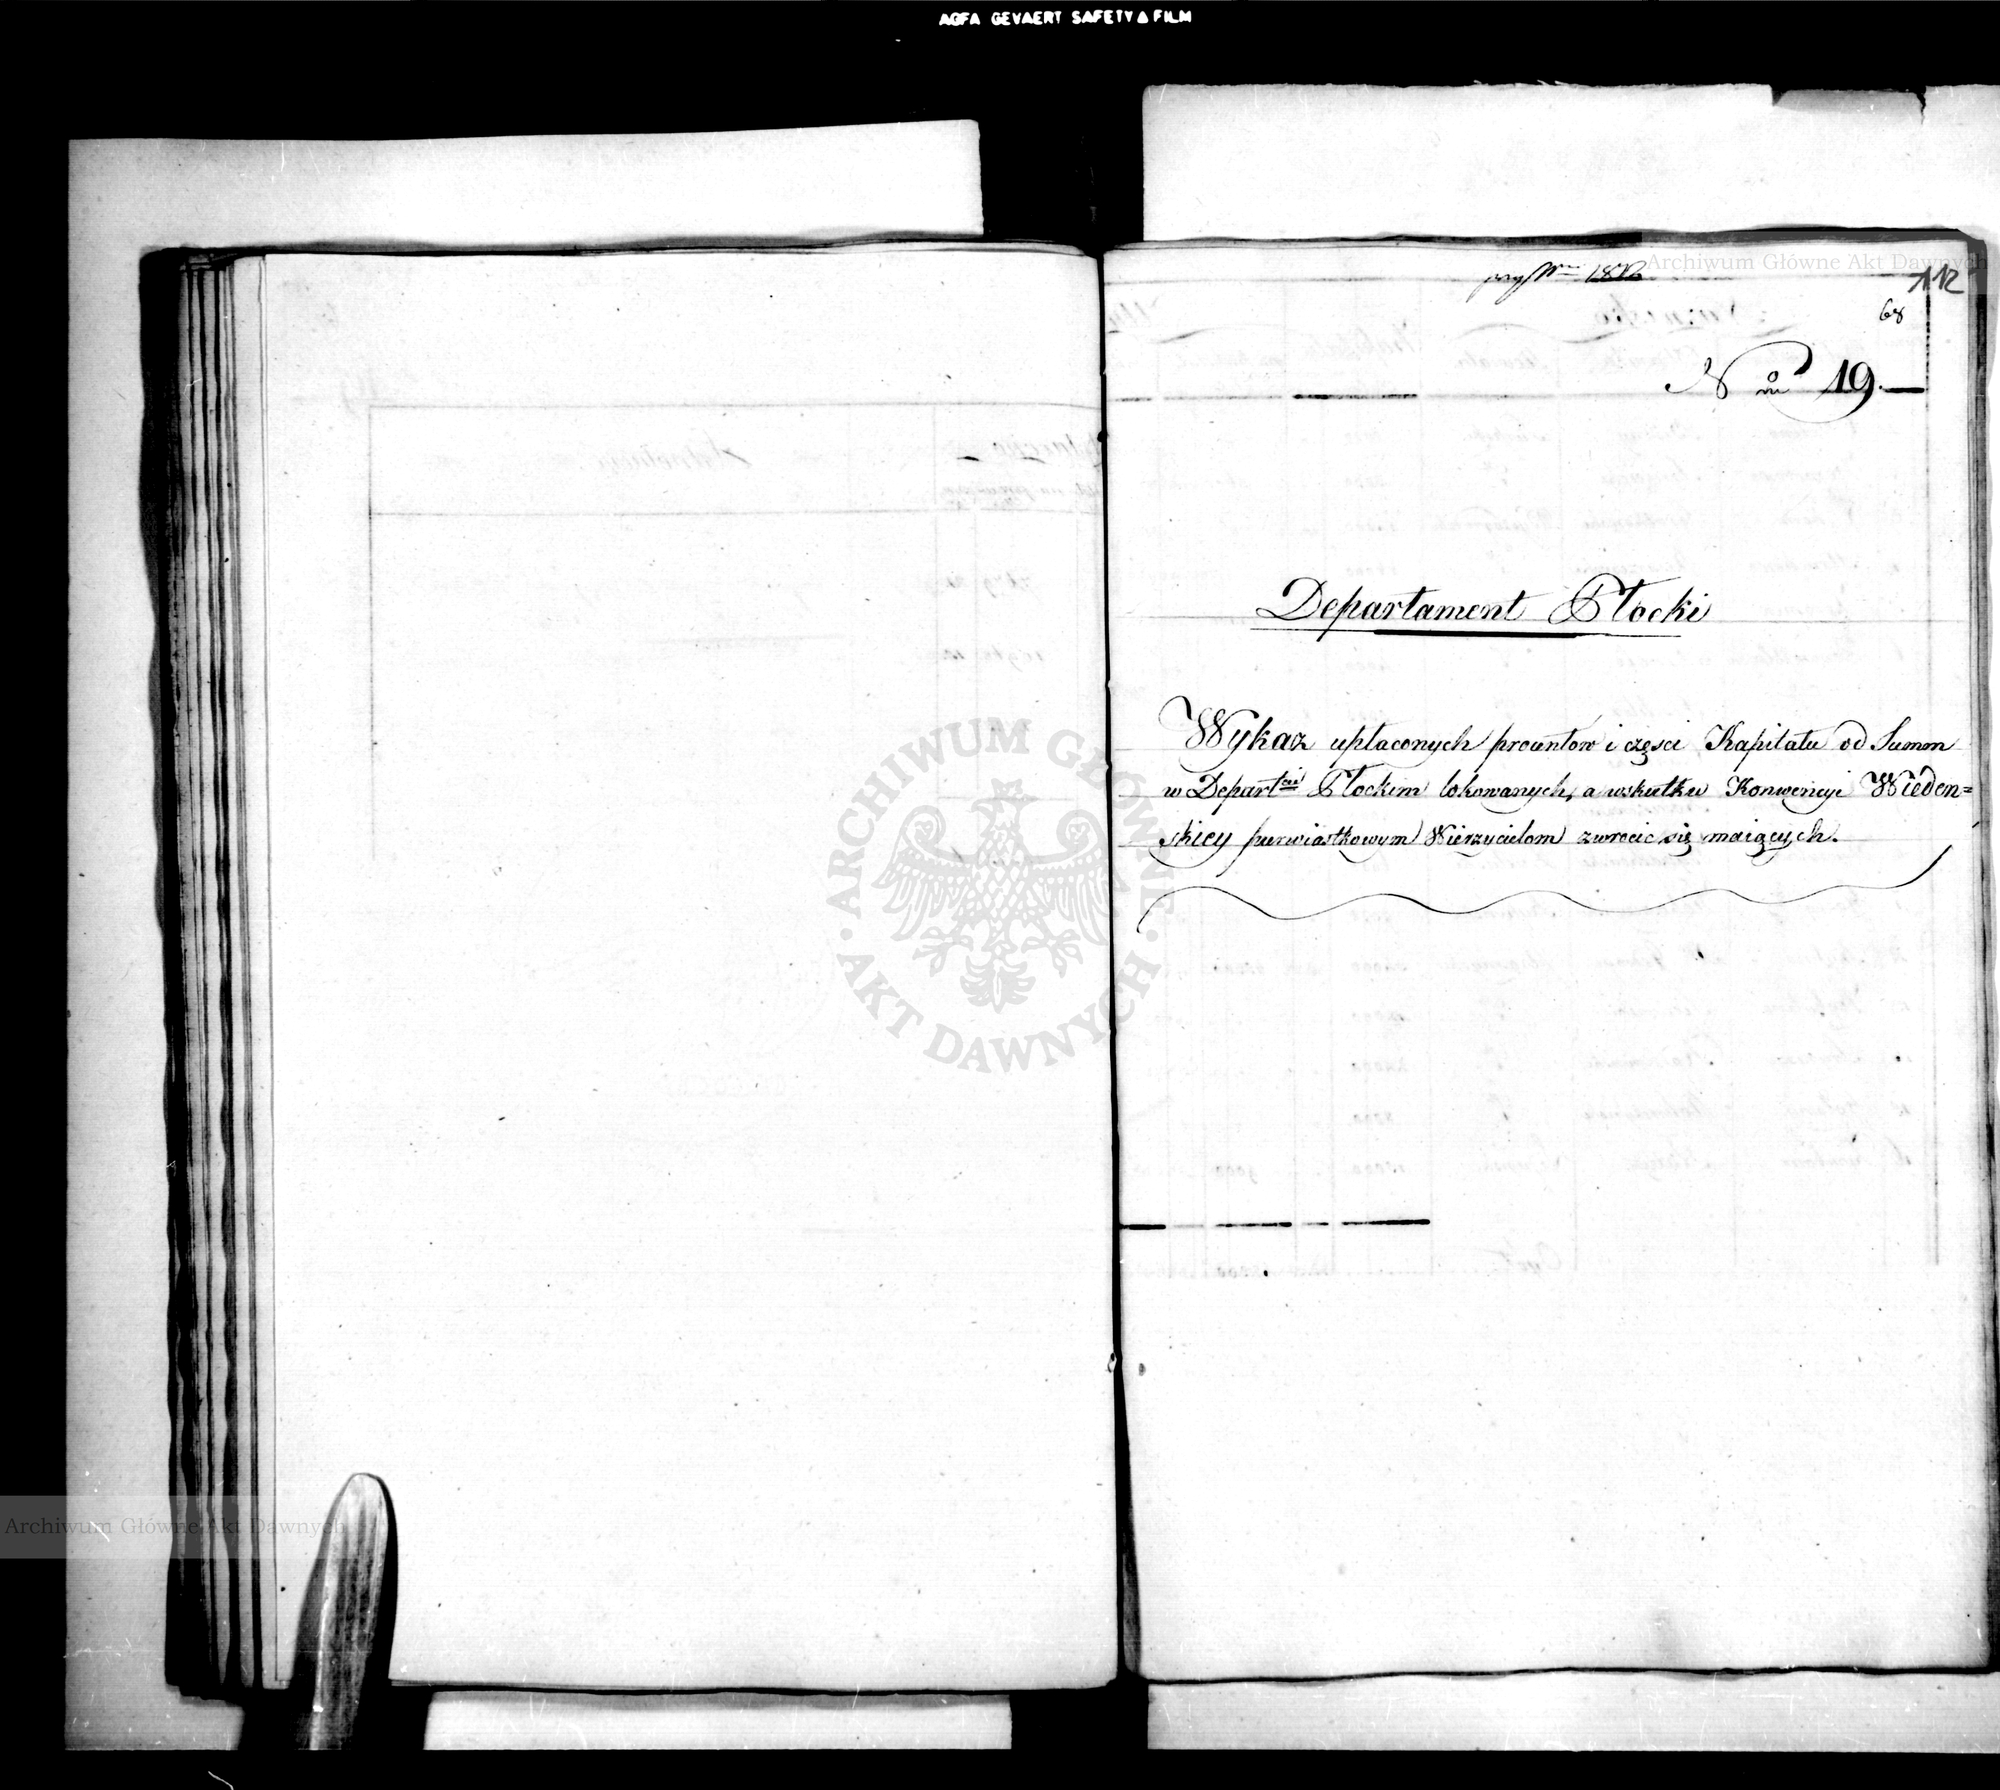 AGFA GEVAERT SAFETY FILM
Archiwum Główne Akt Dawnych
112
68
N ro 19.
Departament Płocki
Wykaz upłaconych procentow i części Kapitału od Summ
w Depart cie Płockim lokowanych, a wskutku Konwencyi Wieden=
skiey pierwiastkowym Wierzycielom zwrocic się maiących.
ARCHIWUM GŁÓWNE
· AKT DAWNYCH ·
Archiwum Główne Akt Dawnych